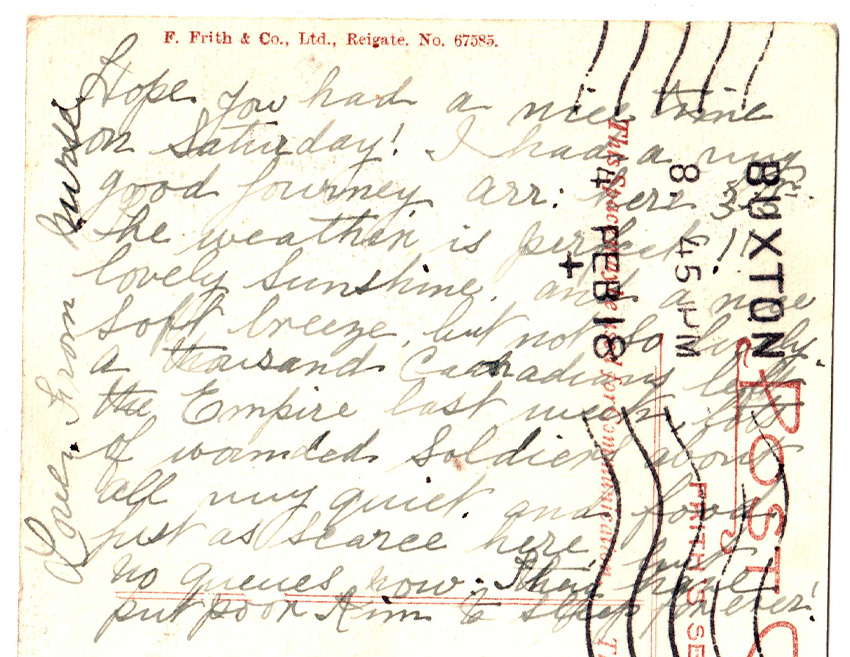 F. Frith & Co., Ltd., Reigate. No. 67585.
Hope you had a nice time
on Saturday! I had a very
good journey arr: here 3
The weather is perfect!!
lovely sunshine, and a nice
soft breeze, but not so lively.
a thousand Canadians left
the Empire last week, lots
of wounded soldiers about
all very quiet. and food
just as scarce here, but
no queues now. They have
put poor Jim to sleep for ever!
Love. From Nurse
BUXTON
8. 45 PM
4 FEB 18
+
This Space may be used for Communication
POST C
FRITH'S SE